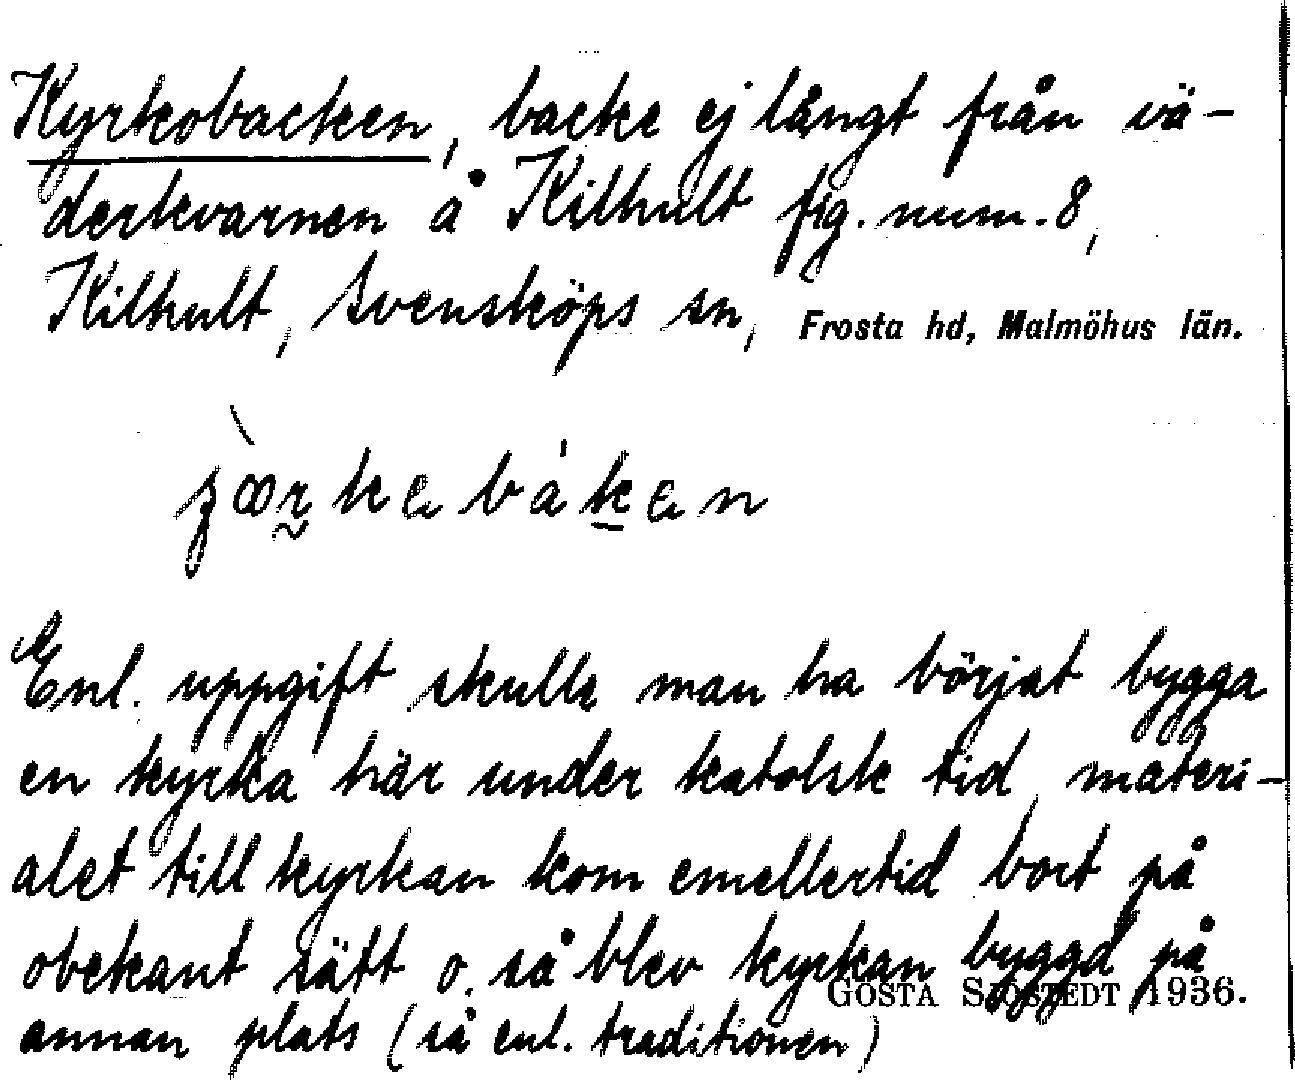 Kyrkobacken, backe ej långt från vä-
derkvarnen å Kilhult fig. num. 8,
Kilhult, Svensköps sn, Frosta hd, Malmöhus län.
Enl. uppgift skulle man ha börjat bygga
en kyrka här under katolsk tid, materi-
alet till kyrkan kom emellertid bort på
obekant sätt o. så blev kyrkan byggd på
GÖSTA SJÖSTEDT 1936.
annan plats (så enl. traditionen)